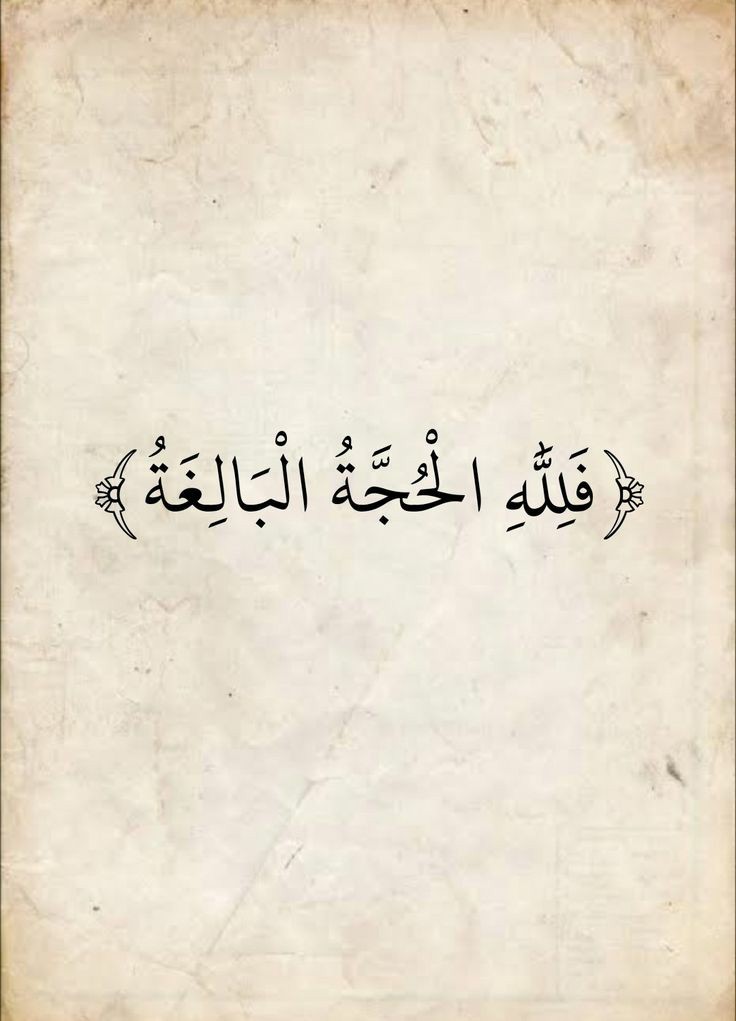 ﴿فَلِلَّهِ الْحُجَّةُ الْبَالِغَةُ﴾